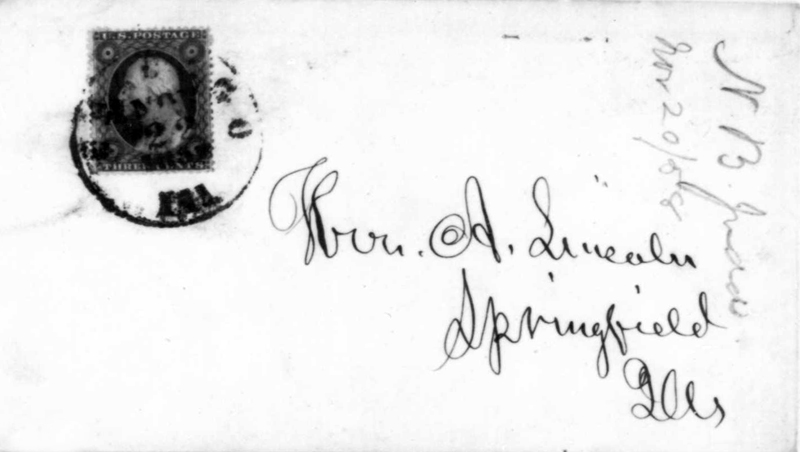 U.S. POSTAGE
THREE CENTS
ILL
Hon. A. Lincoln
Springfield
Ills
N. B. Judd
Nov 20/58